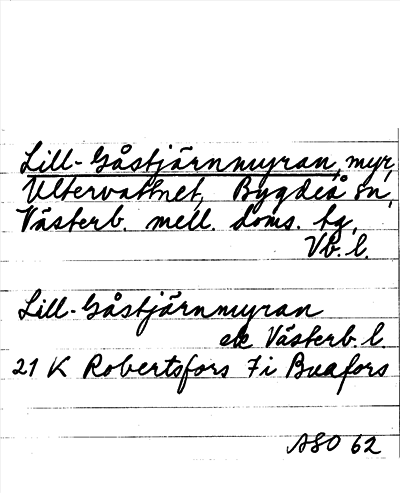 Lill-Gåstjärnmyran, myr,
Ultervattnet, Bygdeå sn,
Västerb. mell. doms. tg,
Vb. l.
Lill-Gåstjärnmyran
ek Västerb. l.
21 K Robertsfors 7i Buafors
ASO 62